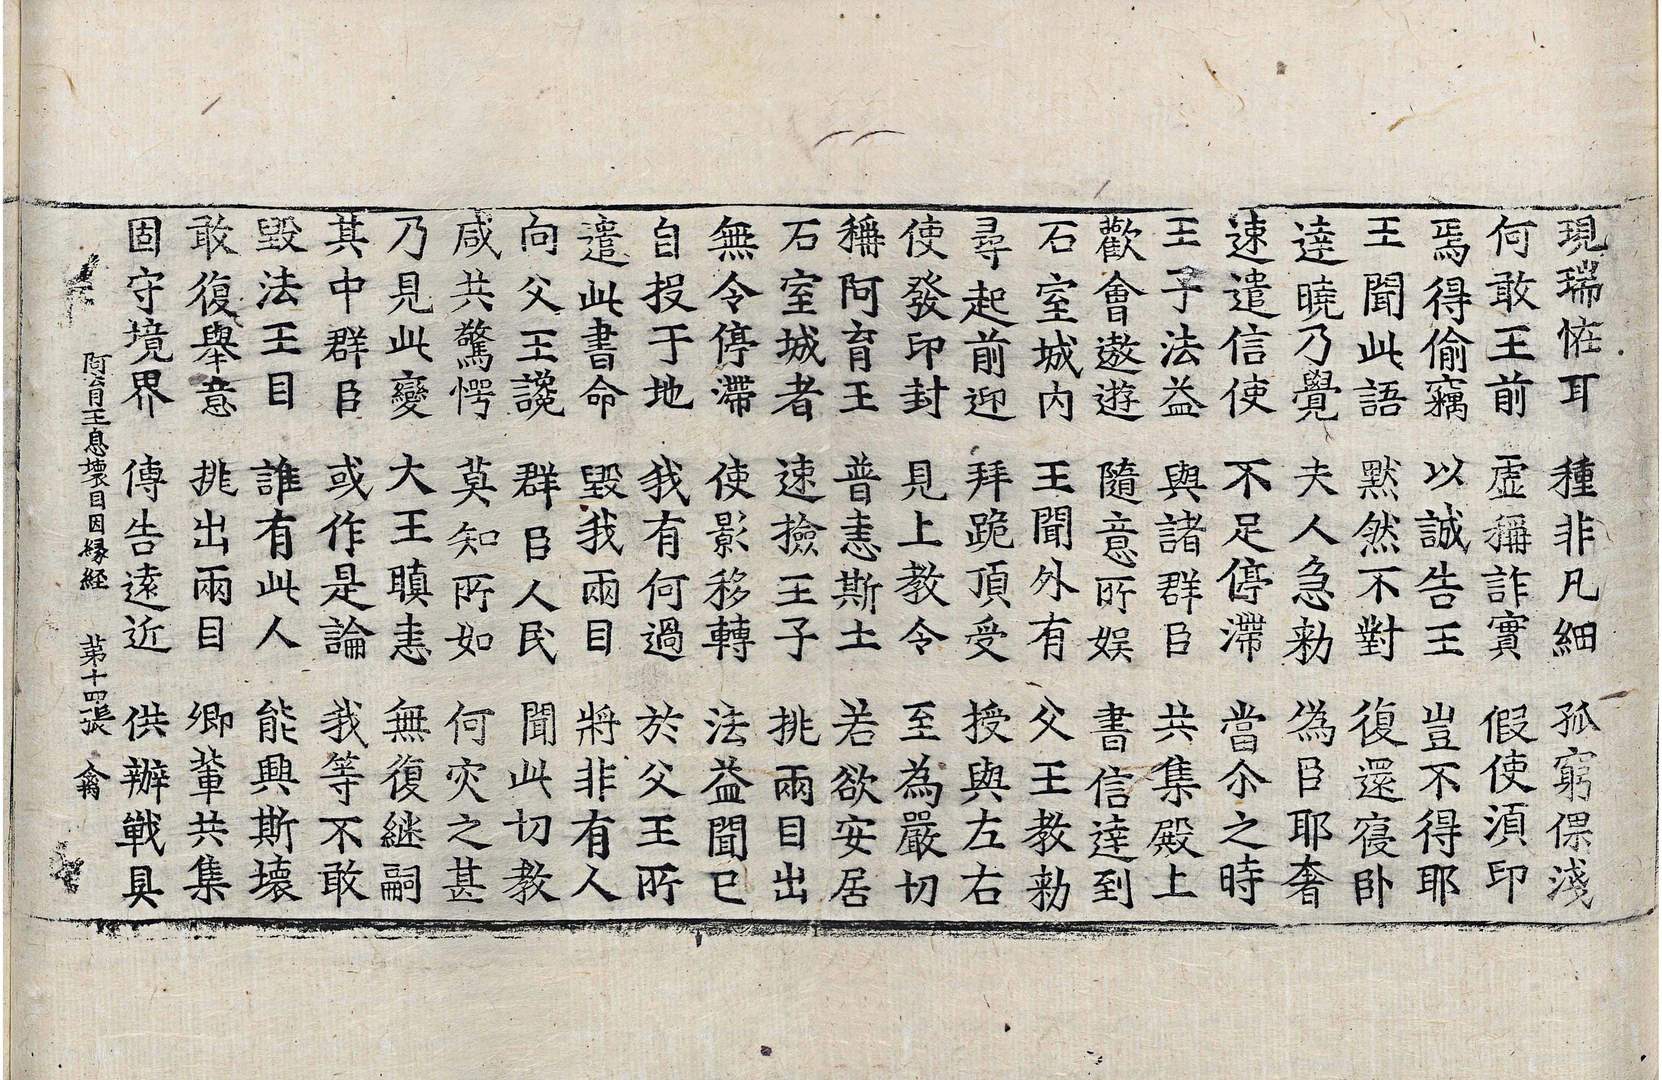 現瑞恠耳　種非凡細　孤窮倮淺
何敢王前　虛稱詐實　假使湏印
焉得偷竊　以誠告王　豈不得耶
王聞此語　黙然不對　復還寑卧
達曉乃覺　夫人急勑　為臣耶奢
速遣信使　不足停滯　當尒之時
王子法益　與諸群臣　共集殿上
歡會遨遊　隨意所娱　書信達到
石室城內　王聞外有　父王教勑
尋起前迎　拜跪頂受　授與左右
使發印封　見上教令　至為嚴切
稱阿育王　普恚斯土　若欲安居
石室城者　速撿王子　挑兩目出
無令停滯　使影移轉　法益聞已
自投于地　我有何過　於父王所
遣此書命　毀我兩目　將非有人
向父王說　群臣人民　聞此切教
咸共驚愕　莫知所如　何灾之甚
乃見此變　大王瞋恚　無復継嗣
其中群臣　或作是論　我等不敢
毀法王目　誰有此人　能興斯壞
敢復舉意　挑出兩目　卿輩共集
固守境界　傳告遠近　供辦戰具
阿育王息壞目因縁経　第十四張　翕